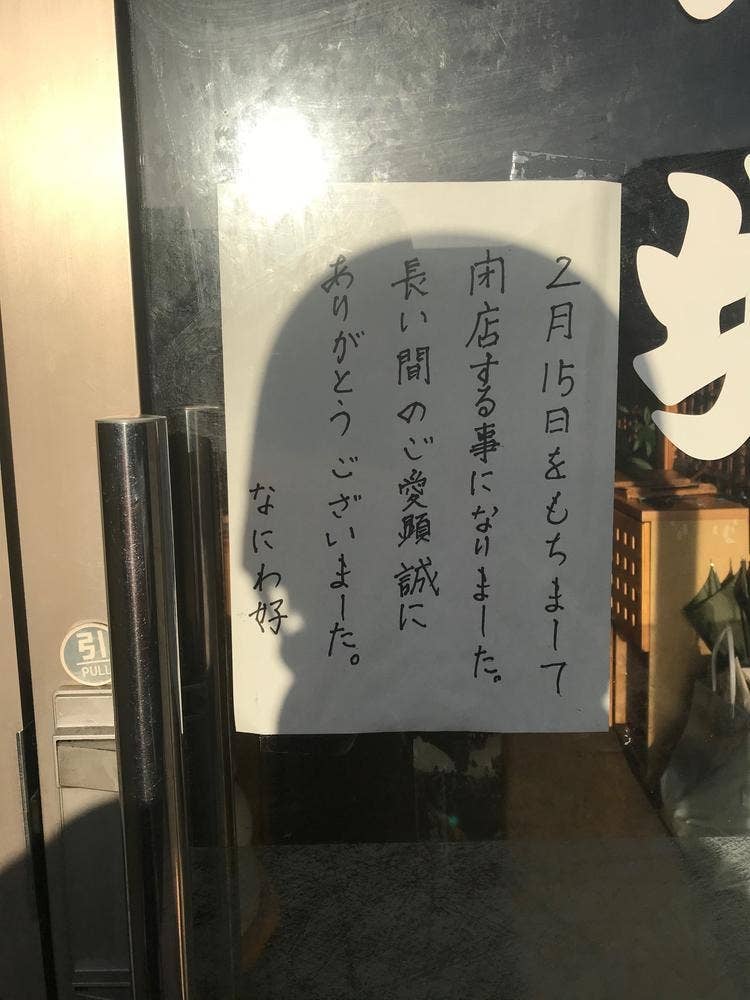 2月15日をもちまして
閉店する事になりました。
長い間のご愛顧誠に
ありがとうございました。
なにわ好
引
PULL